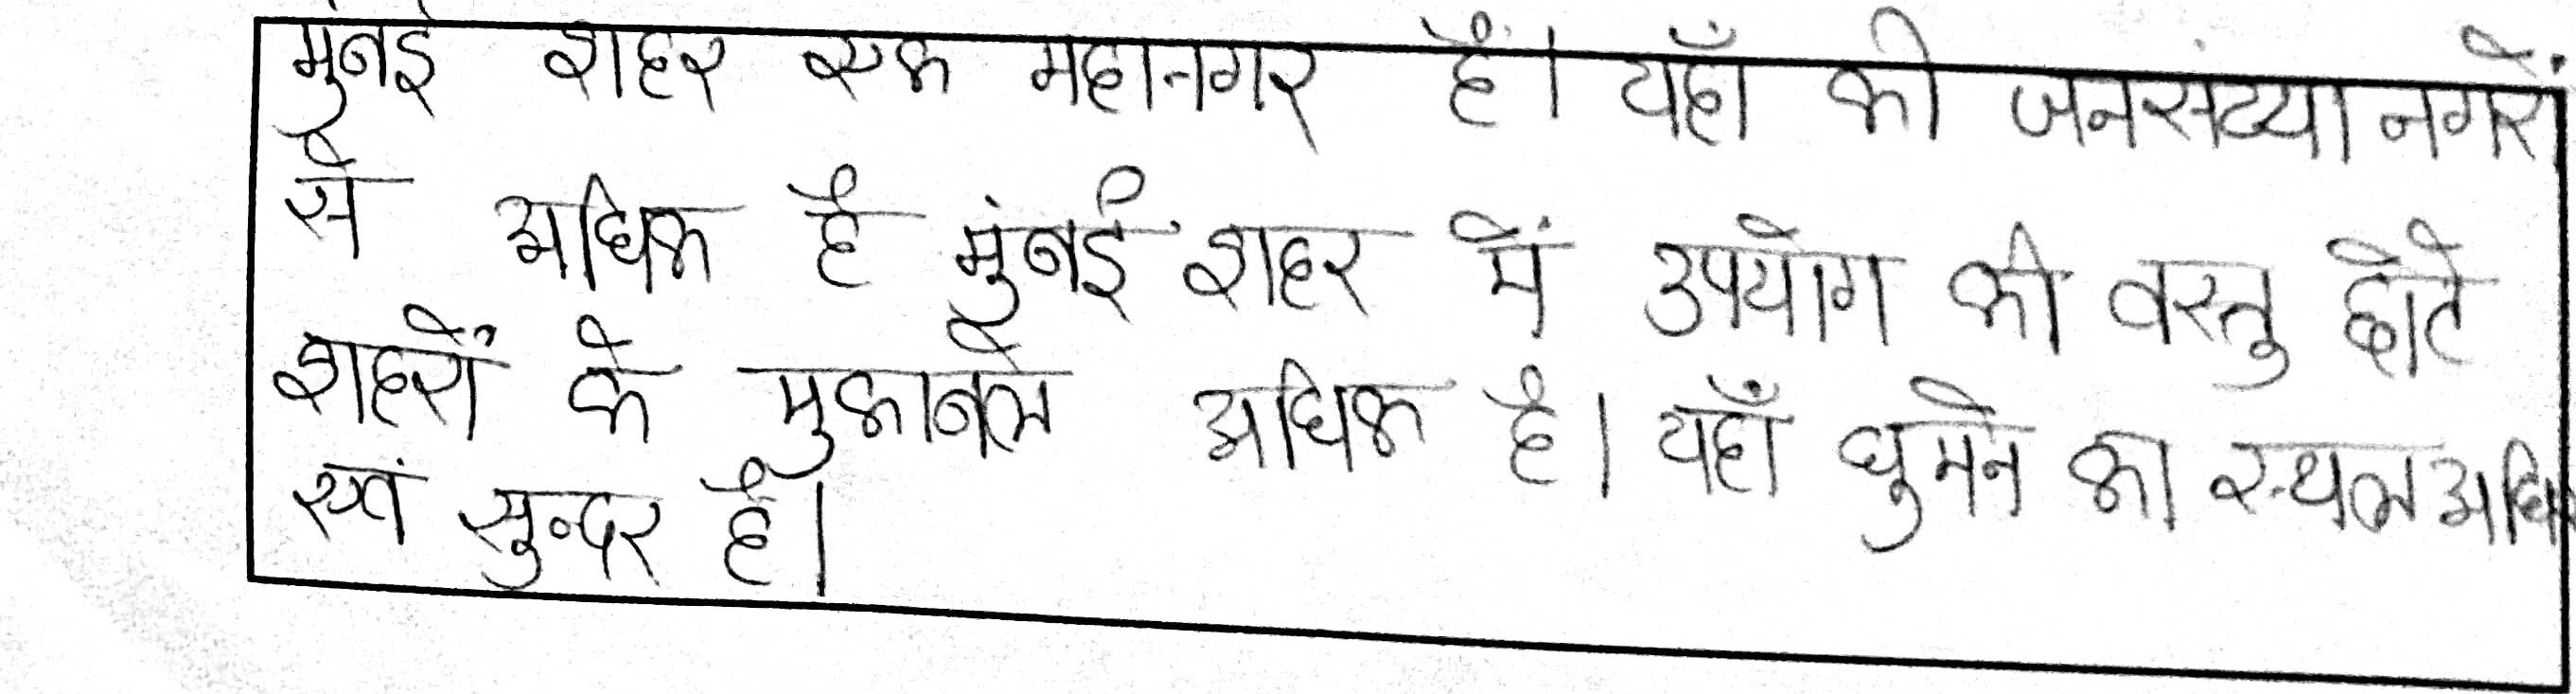 मुंबई शहर एक महानगर हैं। यहाँ की जनसंख्या नगरों
से अधिक है मुंबई शहर में उपयोग की वस्तु छोटे
शहरों के मुकाबले अधिक है। यहाँ घुमने का स्थल अधिक
एवं सुन्दर है।